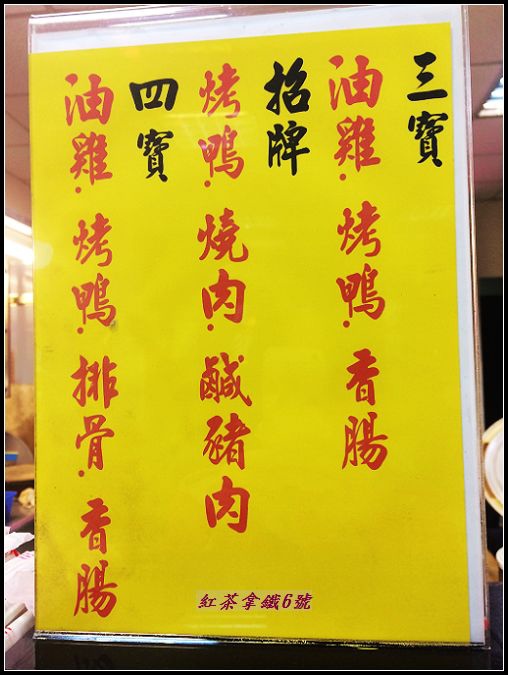 三寶
油雞·烤鴨·香腸
招牌
烤鴨·燒肉·鹹豬肉
四寶
油雞·烤鴨·排骨·香腸
紅茶拿鐵6號